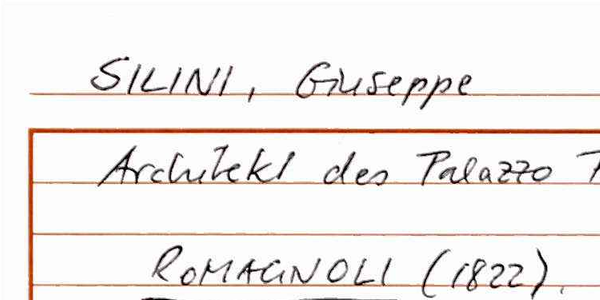 SILINI, Giuseppe
Architekt des Palazzo
ROMAGNOLI (1822).